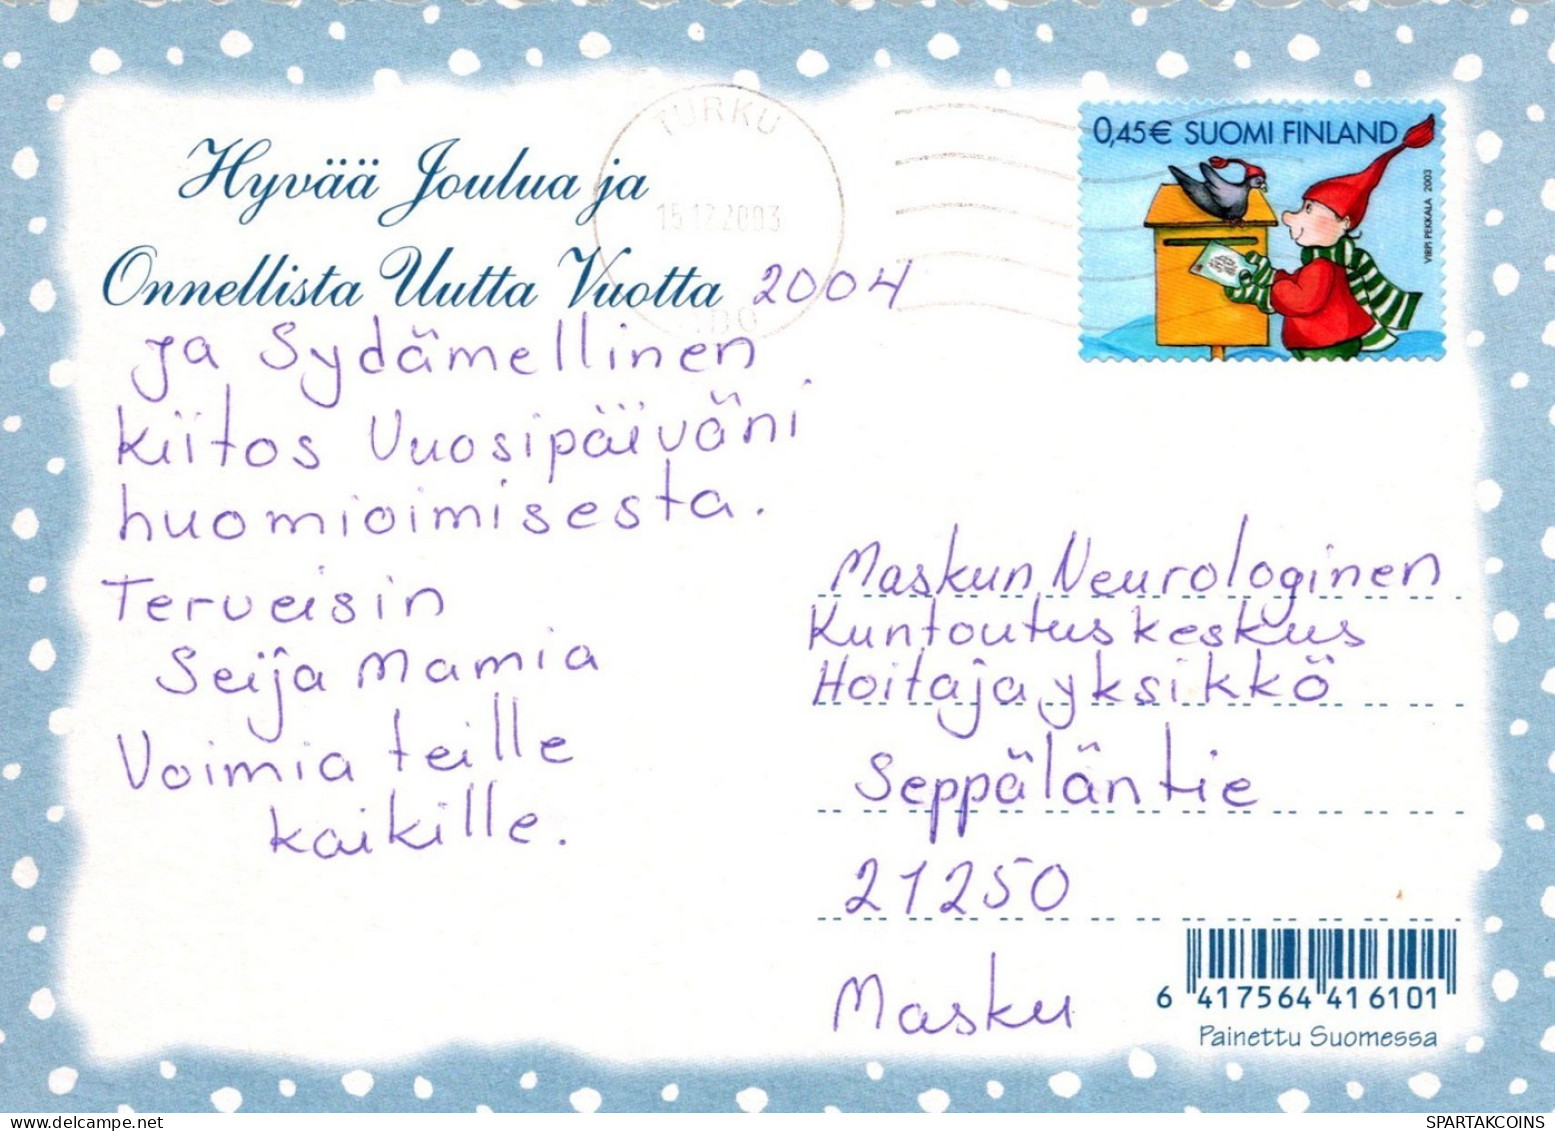 Hyvää Joulua ja
Onnellista Uutta Vuotta 2004
ja Sydämellinen
kiitos Vuosipäiväni
huomioimisesta.
Terveisin
Seija Mamia
Voimia teille
kaikille.
TURKU
15.12.2003
ÅBO
0,45€ SUOMI FINLAND
VIRPI PEKKALA 2003
Maskun Neurologinen
Kuntoutuskeskus
Hoitajayksikkö
Seppäläntie
21250
Masku
6 417564 416101
Painettu Suomessa
www.delcampe.net
SPARTAKCOINS